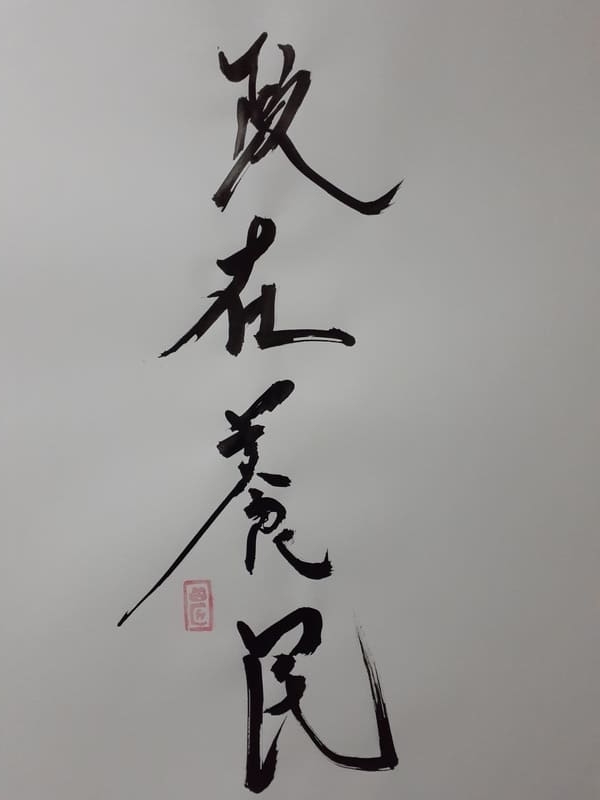 政在養民